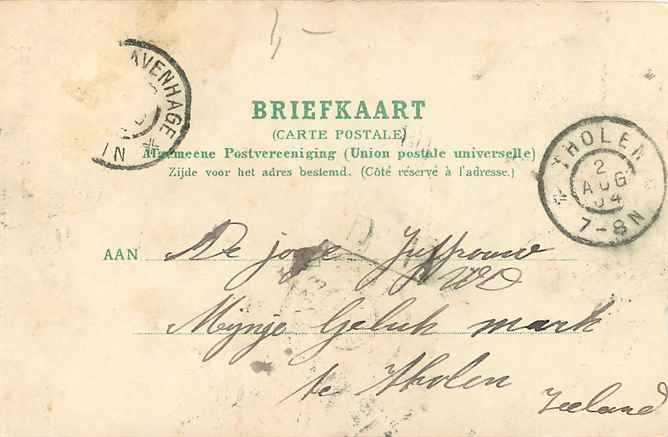 1,-
AVENHAGE
N
BRIEFKAART
(CARTE POSTALE)
Algemeene Postvereeniging (Union postale universelle)
Zijde voor het adres bestemd. (Côté réservé à l'adresse.)
THOLEN
2
AUG
04
7-8N
AAN De jonge Juffrouw
Mijnje Geluk mark
te Tholen
Zeeland